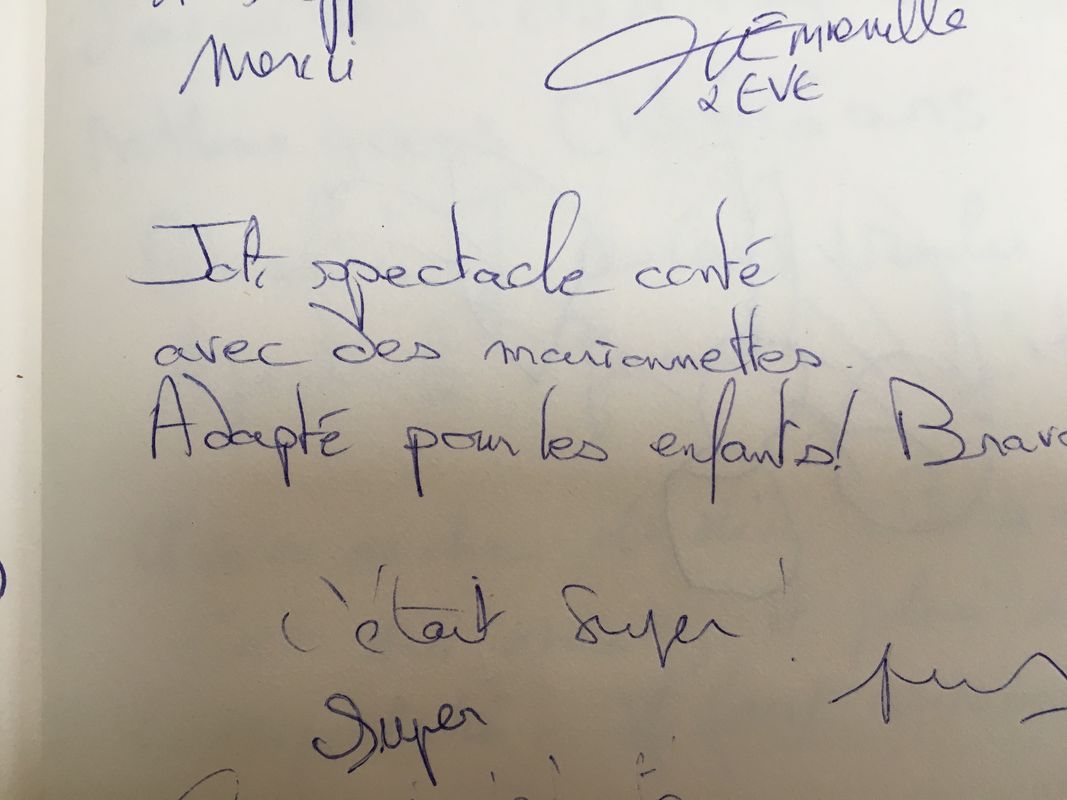 Merci
& EVE
Joli spectacle conté
avec des marionnettes.
Adapté pour les enfants! Bravo
c'était Super!
Super